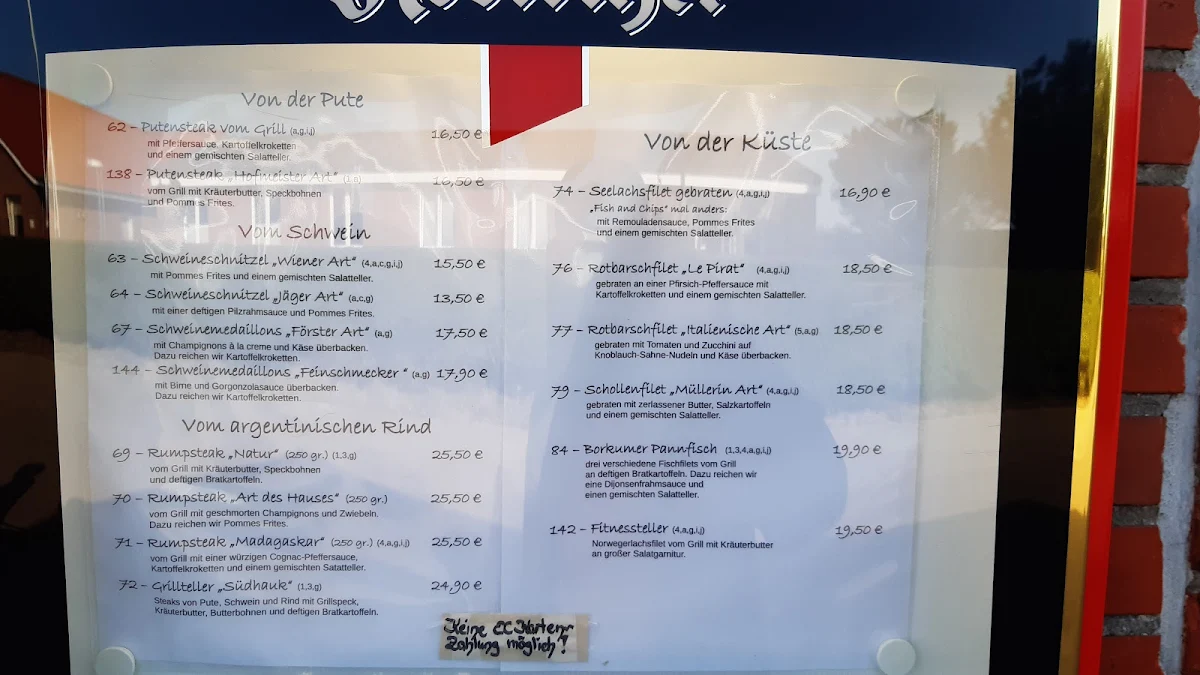 Von der Pute
62 – Putensteak vom Grill (a,g,i,j) 16,50 €
mit Pfeffersauce, Kartoffelkroketten
und einem gemischten Salatteller.
138 – Putensteak „Hofmeister Art“ 16,50 €
vom Grill mit Kräuterbutter, Speckbohnen
und Pommes Frites.
Vom Schwein
63 – Schweineschnitzel „Wiener Art“ (4,a,c,g,i,j) 15,50 €
mit Pommes Frites und einem gemischten Salatteller.
64 – Schweineschnitzel „Jäger Art“ (a,c,g) 13,50 €
mit einer deftigen Pilzrahmsauce und Pommes Frites.
67 – Schweinemedaillons „Förster Art“ (a,g) 17,50 €
mit Champignons à la creme und Käse überbacken.
Dazu reichen wir Kartoffelkroketten.
144 – Schweinemedaillons „Feinschmecker “ (a,g) 17,90 €
mit Birne und Gorgonzolasauce überbacken.
Dazu reichen wir Kartoffelkroketten.
Vom argentinischen Rind
69 – Rumpsteak „Natur“ (250 gr.) (1,3,g) 25,50 €
vom Grill mit Kräuterbutter, Speckbohnen
und deftigen Bratkartoffeln.
70 – Rumpsteak „Art des Hauses“ (250 gr.) 25,50 €
vom Grill mit geschmorten Champignons und Zwiebeln.
Dazu reichen wir Pommes Frites.
71 – Rumpsteak „Madagaskar“ (250 gr.) (4,a,g,i,j) 25,50 €
vom Grill mit einer würzigen Cognac-Pfeffersauce,
Kartoffelkroketten und einem gemischten Satatteller.
72 – Grillteller „Südhauk“ (1,3,g) 24,90 €
Steaks von Pute, Schwein und Rind mit Grillspeck,
Kräuterbutter, Butterbohnen und deftigen Bratkartoffeln.
Von der Küste
74 – Seelachsfilet gebraten (4,a,g,i,j) 16,90 €
„Fish and Chips“ mal anders:
mit Remouladensauce, Pommes Frites
und einem gemischten Salatteller.
76 – Rotbarschfilet „Le Pirat“ (4,a,g,i,j) 18,50 €
gebraten an einer Pfirsich-Pfeffersauce mit
Kartoffelkroketten und einem gemischten Salatteller.
77 – Rotbarschfilet „Italienische Art“ (5,a,g) 18,50 €
gebraten mit Tomaten und Zucchini auf
Knoblauch-Sahne-Nudeln und Käse überbacken.
79 – Schollenfilet „Müllerin Art“ (4,a,g,i,j) 18,50 €
gebraten mit zerlassener Butter, Salzkartoffeln
und einem gemischten Salatteller.
84 – Borkumer Pannfisch (1,3,4,a,g,i,j) 19,90 €
drei verschiedene Fischfilets vom Grill
an deftigen Bratkartoffeln. Dazu reichen wir
eine Dijonsenfrahmsauce und
einen gemischten Salatteller.
142 – Fitnessteller (4,a,g,i,j) 19,50 €
Norwegerlachsfilet vom Grill mit Kräuterbutter
an großer Salatgarnitur.
Keine EC Karten-
Zahlung möglich!